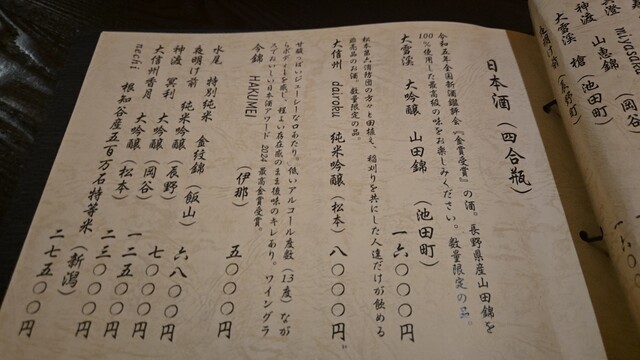 日本酒（四合瓶）
令和五年全国新酒鑑評会『金賞受賞』の酒。長野県産山田錦を
100％使用した最高級の味をお楽しみください。数量限定の品。
大雪渓 大吟醸 山田錦（池田町） 一六〇〇〇円
松本第六消防団の方々と田植え、稲刈りを共にした人達だけが飲める
非売品のお酒。数量限定の品。
大信州 dairoku 純米吟醸（松本） 八〇〇〇円
甘酸っぱいジューシーな口あたり。低いアルコール度数（13度）なが
らボディーを感じ、程よい存在感のまま後味のキレあり。ワイングラ
スでおいしい日本酒アワード 2024 最高金賞受賞。
今錦 HAKUMEI （伊那） 五〇〇〇円
水尾 特別純米 金紋錦（飯山） 六八〇〇円
夜明け前 純米吟醸（長野） 七〇〇〇円
神渡 冥利 大吟醸（岡谷） 一二五〇〇円
大信州香月 大吟醸（松本） 二三〇〇〇円
nechi 根知谷産五百万石特等米（新潟） 二七五〇〇円
大雪渓 槍（池田町）
神渡 山恵錦（岡谷）